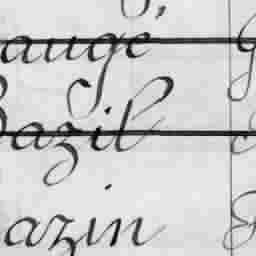 augé
Bazil
azin